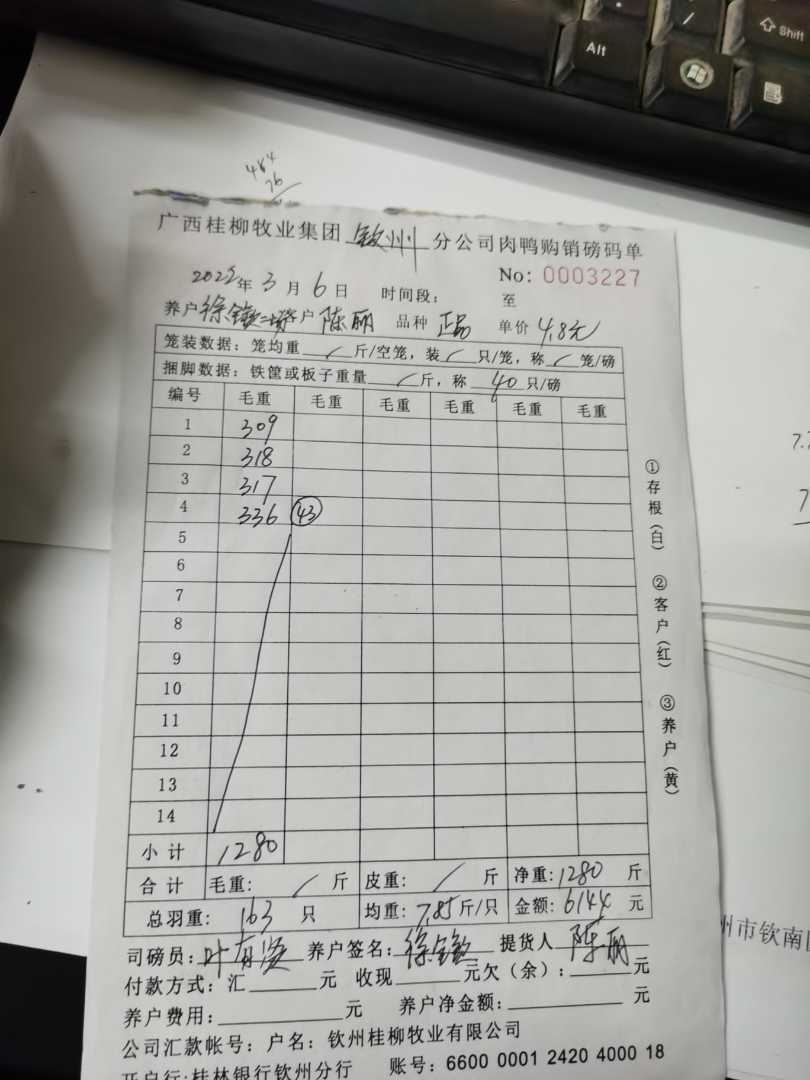 Alt
Shift
484
76
广西桂柳牧业集团 钦州 分公司肉鸭购销磅码单
No: 0003227
2022年 3 月 6 日 时间段: 至
养户 徐 二场 客户 陈丽 品种 正品 单价 4.8元
笼装数据: 笼均重 / 斤/空笼, 装 / 只/笼, 称 / 笼/磅
捆脚数据: 铁筐或板子重量 / 斤, 称 40 只/磅
编号 毛重 毛重 毛重 毛重 毛重 毛重
1 309
2 318
3 317
4 336 43
5
6
7
8
9
10
11
12
13
14
小计 1280
合计 毛重: / 斤 皮重: / 斤 净重: 1280 斤
总羽重: 163 只 均重: 7.85 斤/只 金额: 6144 元
司磅员: 叶 养户签名: 徐 提货人 陈丽
付款方式: 汇 元 收现 元欠(余): 元
养户费用: 元 养户净金额: 元
公司汇款帐号: 户名: 钦州桂柳牧业有限公司
开户行:桂林银行钦州分行 账号: 6600 0001 2420 4000 18
①存根(白) ②客户(红) ③养户(黄)
州市钦南